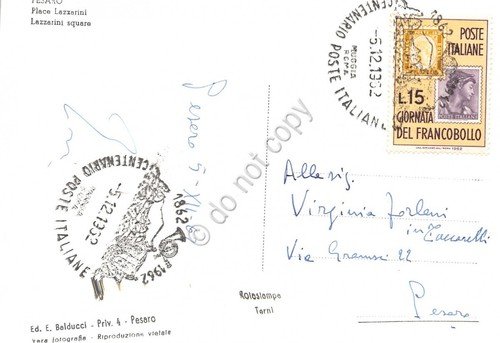 PESARO
Place Lazzarini
Lazzarini square
Pesaro 5-XII-62
CENTENARIO POSTE ITALIANE
1862
1962
-5.12.1962
Ed. E. Balducci - Priv. 4 - Pesaro
Vera fotografia - Riproduzione vietata
Rotostampa
Terni
© do not copy
CENTENARIO POSTE ITALIANE
1862
-5.12.1962
POSTE
ITALIANE
L.15
GIORNATA
DEL FRANCOBOLLO
Alla sig.
Virginia Forlani
in Zaccarelli
Via Gramsci 22
Pesaro